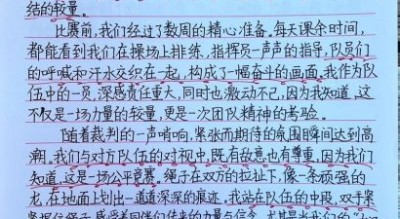 结的较量。
比赛前,我们经过了数周的精心准备。每天课余时间,
都能看到我们在操场上排练,指挥员一声声的指导,队员们
的呼喊和汗水交织在一起,构成了一幅奋斗的画面。我作为队
伍中的一员,深感责任重大,同时也激动不已,因为我知道,这
不仅是一场力量的较量,更是一次团队精神的考验。
随着裁判的一声哨响,紧张而期待的氛围瞬间达到高
潮。我们与对方队伍的对视中,既有敌意也有尊重,因为我们
知道,这是一场公平竞赛。绳子在双方的拉扯下,像一条顽强的
龙,在地面上划出一道道深深的痕迹。我站在队伍的中段,双手紧
紧握住绳子,感受着同伴们传来的力量与信念